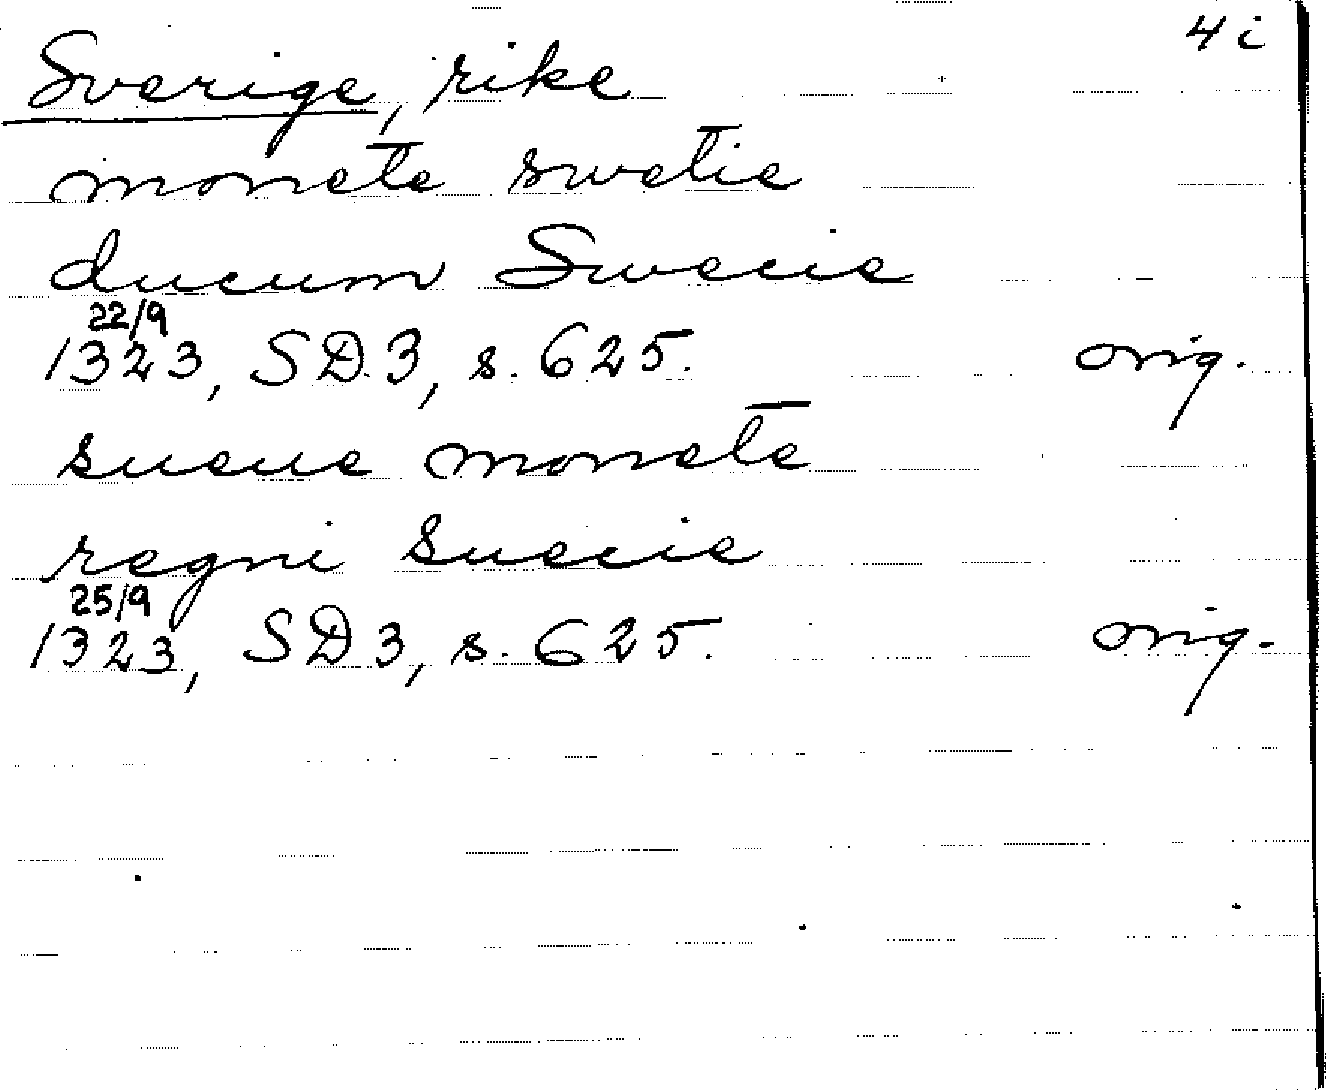 4 i
Sverige, rike
monete swetie
ducum Swecie
22/9
1323, SD 3, s. 625. orig.
sueue monete
regni Suecie
25/9
1323, SD 3, s. 625. orig.